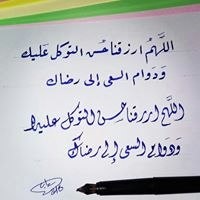 اللهم ارزقنا حسن التوكل عليك
ودوام السعى إلى رضاك
اللهم ارزقنا حسن التوكل عليك
ودوام السعى إلى رضاك